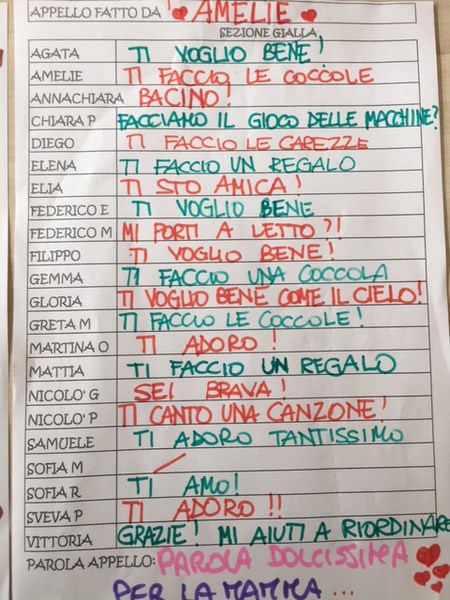 APPELLO FATTO DA: AMELIE
SEZIONE GIALLA
AGATA TI VOGLIO BENE!
AMELIE TI FACCIO LE COCCOLE
ANNACHIARA BACINO!
CHIARA P FACCIAMO IL GIOCO DELLE MACCHINE?
DIEGO TI FACCIO LE CAREZZE
ELENA TI FACCIO UN REGALO
ELIA TI STO AMICA!
FEDERICO E TI VOGLIO BENE
FEDERICO M MI PORTI A LETTO?!
FILIPPO TI VOGLIO BENE!
GEMMA TI FACCIO UNA COCCOLA
GLORIA TI VOGLIO BENE COME IL CIELO!
GRETA M TI FACCIO LE COCCOLE!
MARTINA O TI ADORO!
MATTIA TI FACCIO UN REGALO
NICOLO' G SEI BRAVA!
NICOLO' P TI CANTO UNA CANZONE!
SAMUELE TI ADORO TANTISSIMO
SOFIA M
SOFIA R TI AMO!
SVEVA P TI ADORO!!
VITTORIA GRAZIE! MI AIUTI A RIORDINARE
PAROLA APPELLO: PAROLA DOLCISSIMA
PER LA MAMMA...